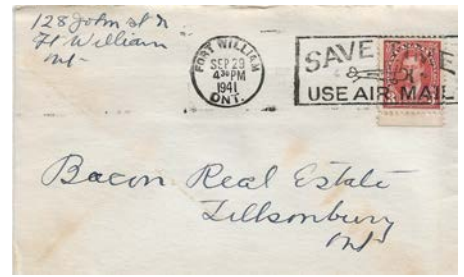 128 John st N
Ft William
Ont
FORT WILLIAM
SEP 29
4 30 PM
1941
ONT.
SAVE TIME
USE AIR MAIL
Bacon Real Estate
Tillsonburg
Ont